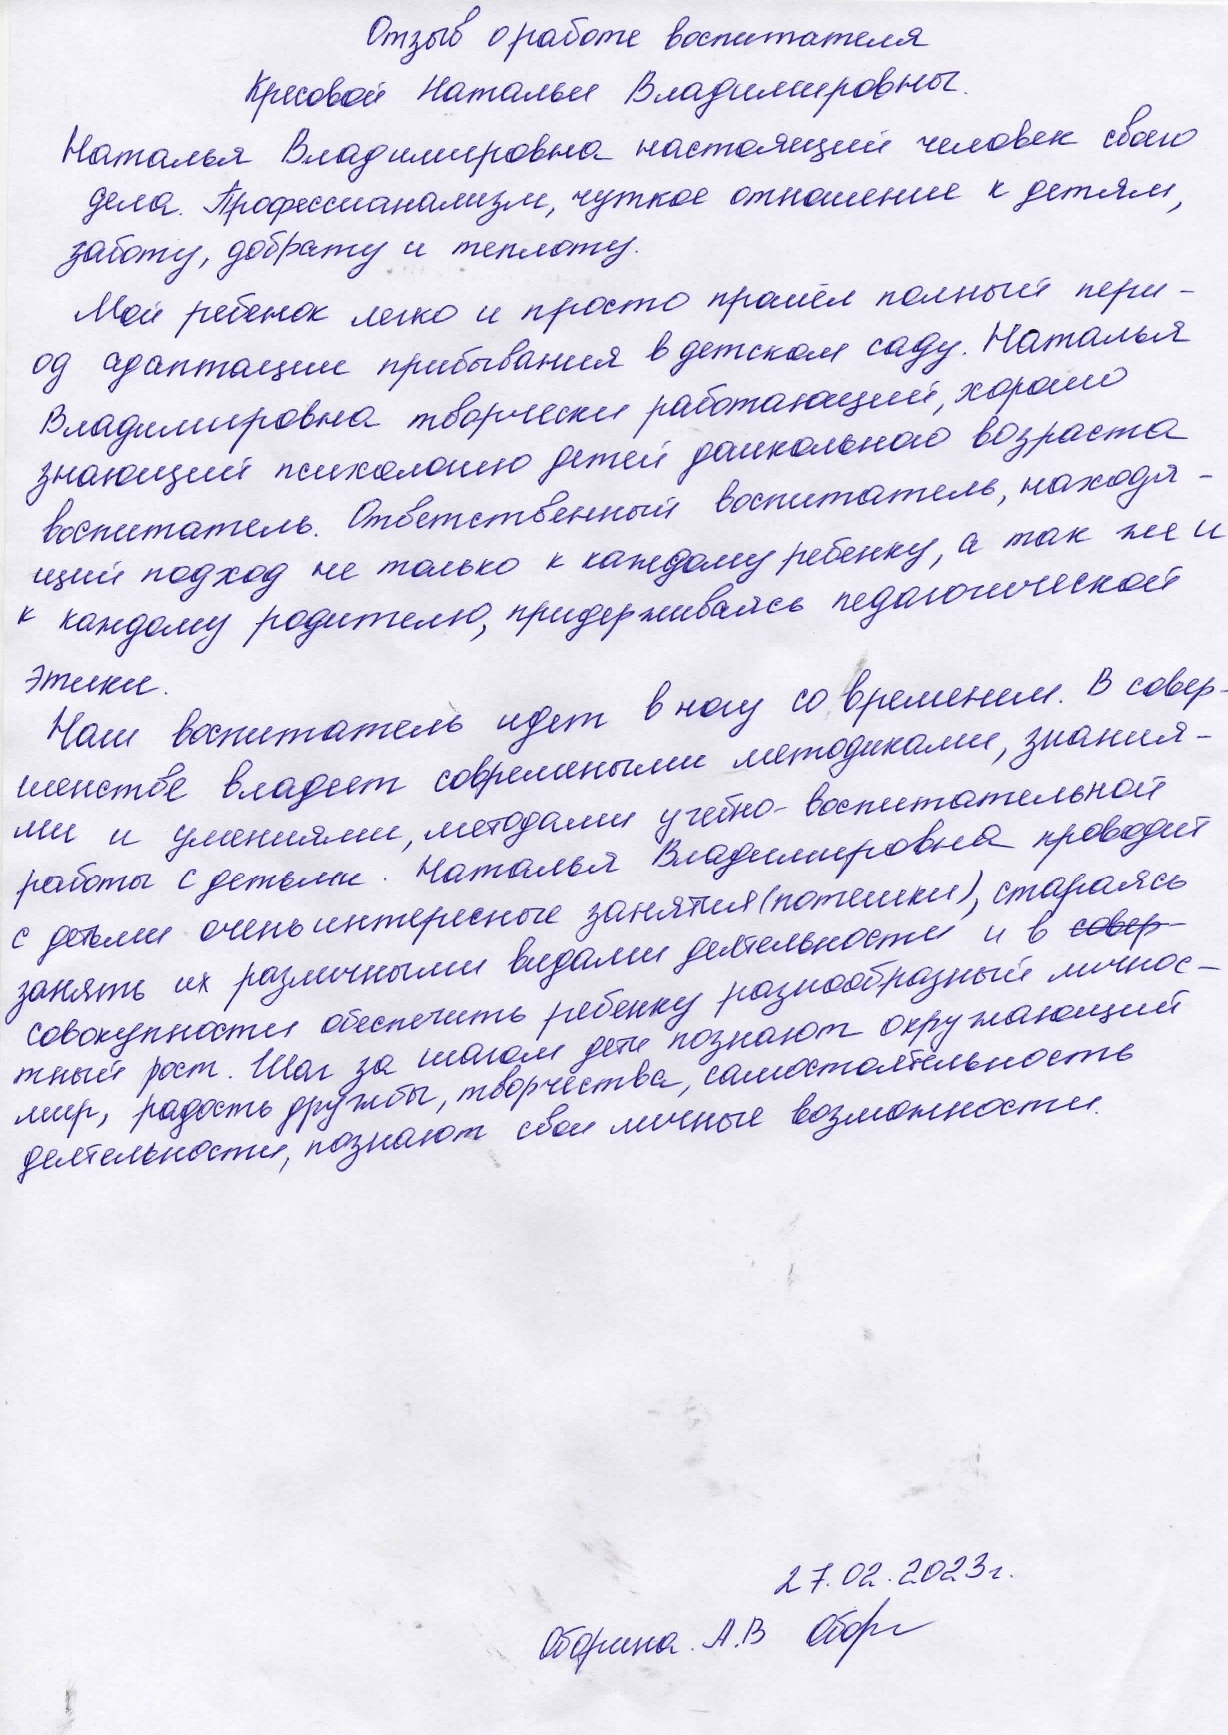 Отзыв о работе воспитателя
Кресовой Натальи Владимировны.
Наталья Владимировна настоящий человек своего
дела. Професcианализм, чуткое отношение к детям,
заботу, доброту и теплоту.
Мой ребенок легко и просто прошёл полный пери-
од адаптации прибывания в детском саду. Наталья
Владимировна творчески работающий, хорошо
знающий психологию детей дошкольного возраста
воспитатель. Ответственный воспитатель, находя-
щий подход не только к каждому ребенку, а так же и
к каждому родителю, придерживаясь педагогической
этики.
Наш воспитатель идет в ногу со временем. В совер-
шенстве владеет современыми методиками, знания-
ми и умениями, методами учебно-воспитательной
работы с детьми. Наталья Владимировна проводит
с детьми очень интересные занятия (потешки), стараясь
занять их различными видами деятельности и в совер-
совокупности обеспечить ребенку разнообразный личнос-
тный рост. Шаг за шагом дети познают окружающий
мир, радость дружбы, творчества, самостоятельность
деятельности, познают свои личные возможности.
27.02.2023г.
Оборина. А.В